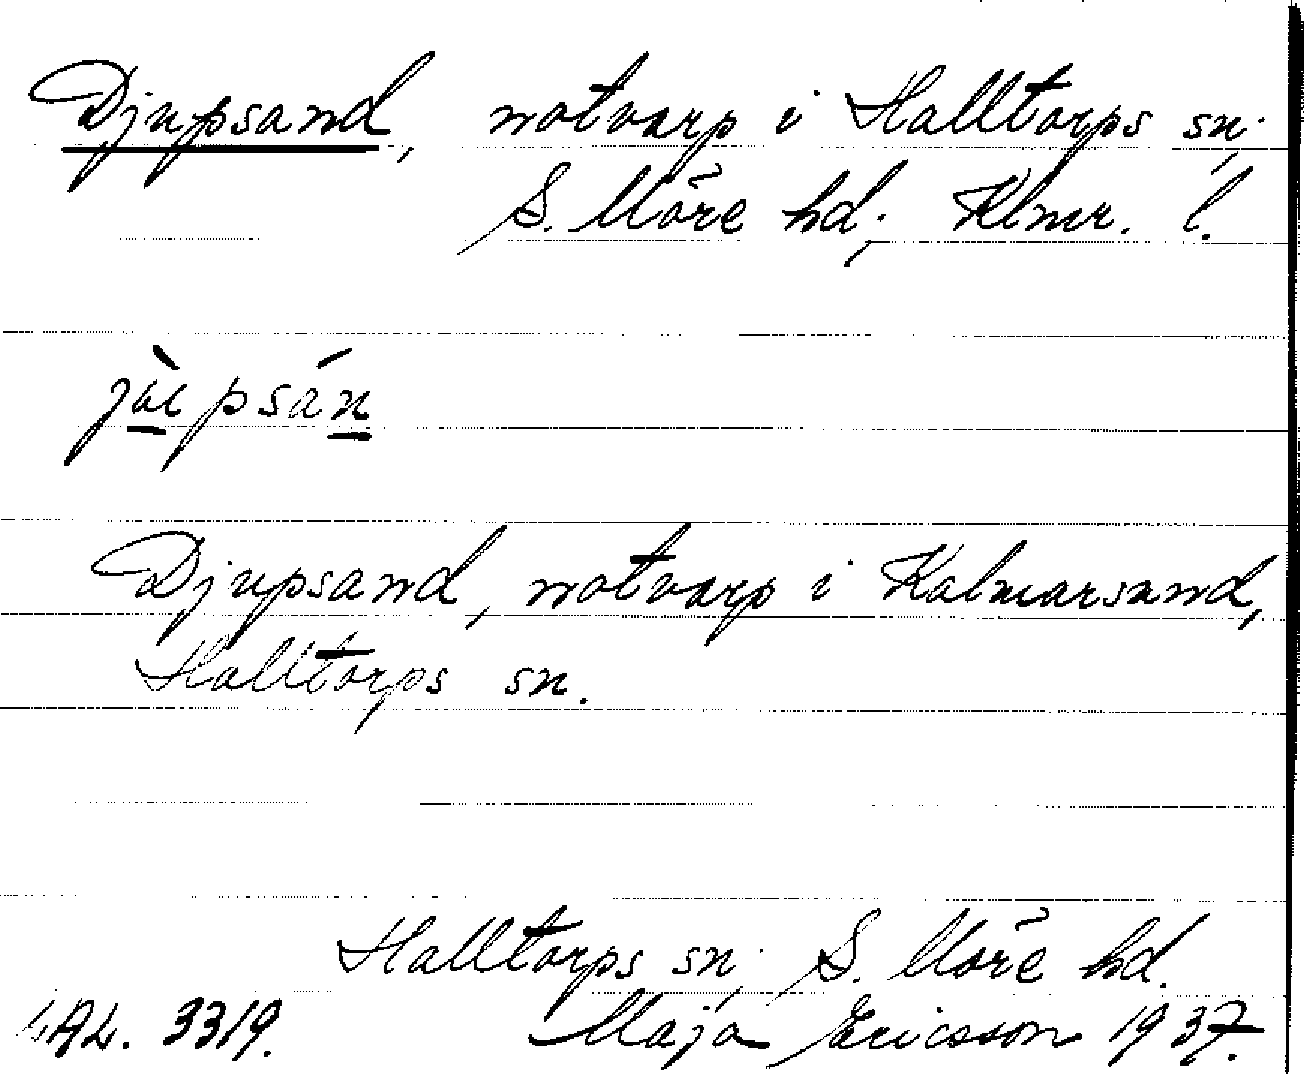 Djupsand, notvarp i Halltorps sn;
S. Möre hd; Klmr. l.
Djupsand, notvarp i Kalmarsund,
Halltorps sn.
Halltorps sn; S. Möre hd.
3319. Maja Ericsson 1937.